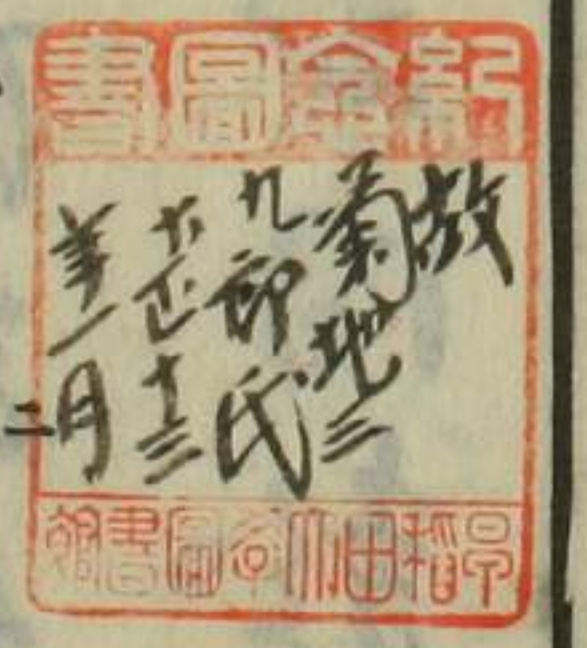 紀念圖書
故
菊地三
九郎氏
大正十三
年一月
二
早稻田大學圖書館